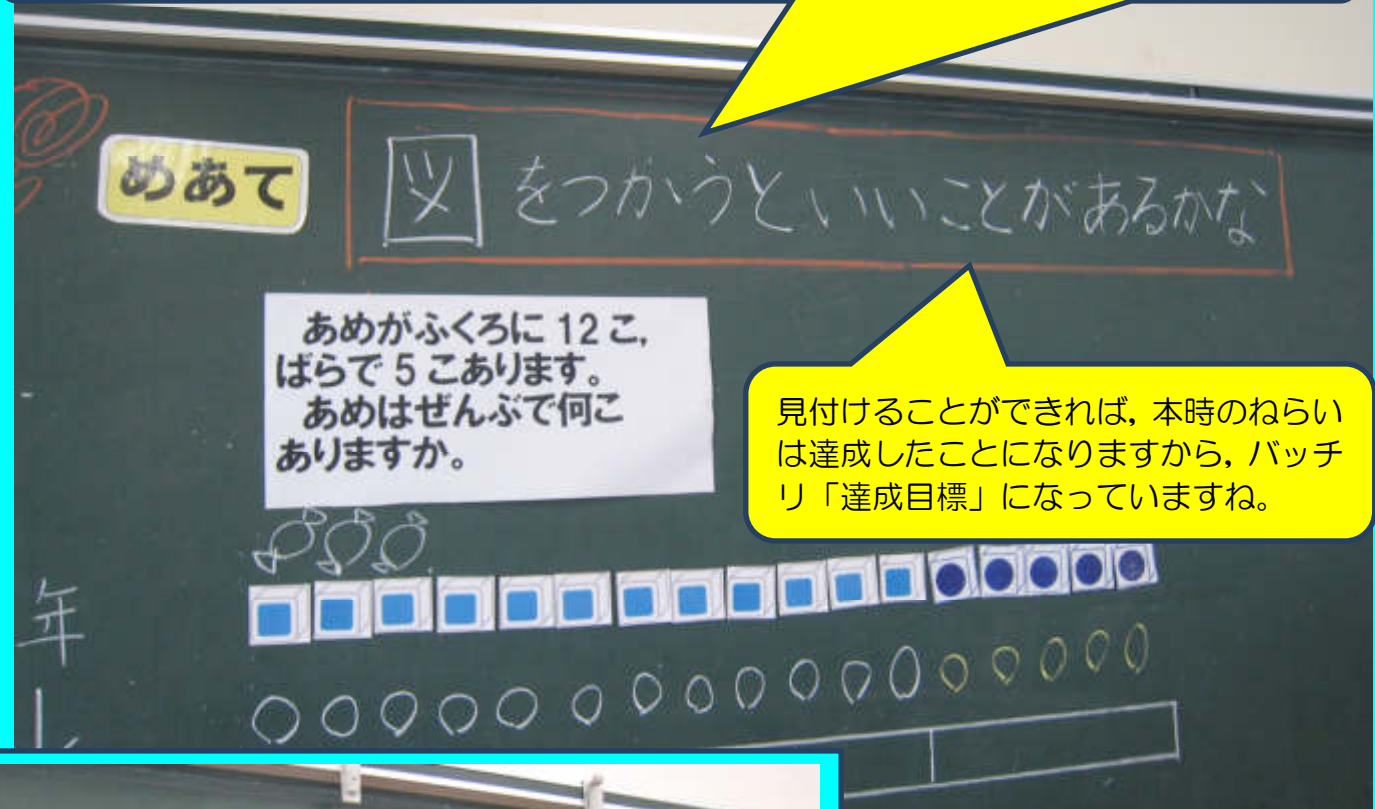 めあて
図をつかうといいことがあるかな
あめがふくろに 12 こ,
ばらで 5 こあります。
あめはぜんぶで何こ
ありますか。
見付けることができれば, 本時のねらい
は達成したことになりますから, バッチ
リ「達成目標」になっていますね。
年